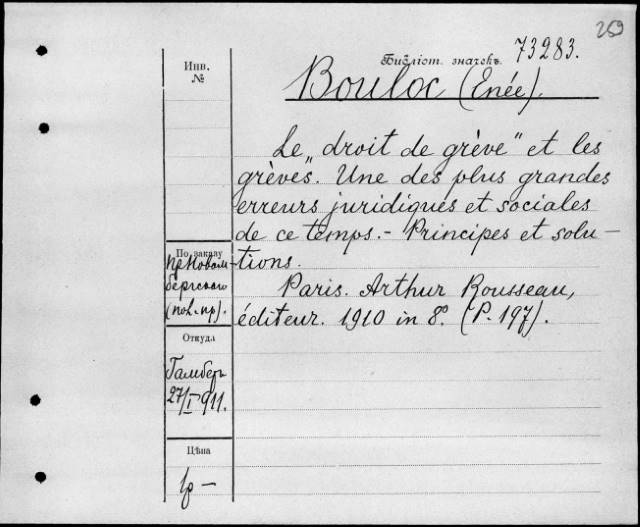 259
Библіот. значекъ 73283.
Инв. №
Bouloc (Enée).
Le „droit de grève" et les
grèves. Une des plus grandes
erreurs juridiques et sociales
de ce temps.- Principes et solu-
tions.
Paris. Arthur Rousseau,
éditeur. 1910 in 8°. (P. 197).
По заказу
пр. Новом-
бергскаго
(пол.-пр).
Откуда
Гамбер
27/I 911.
Цѣна
1р —